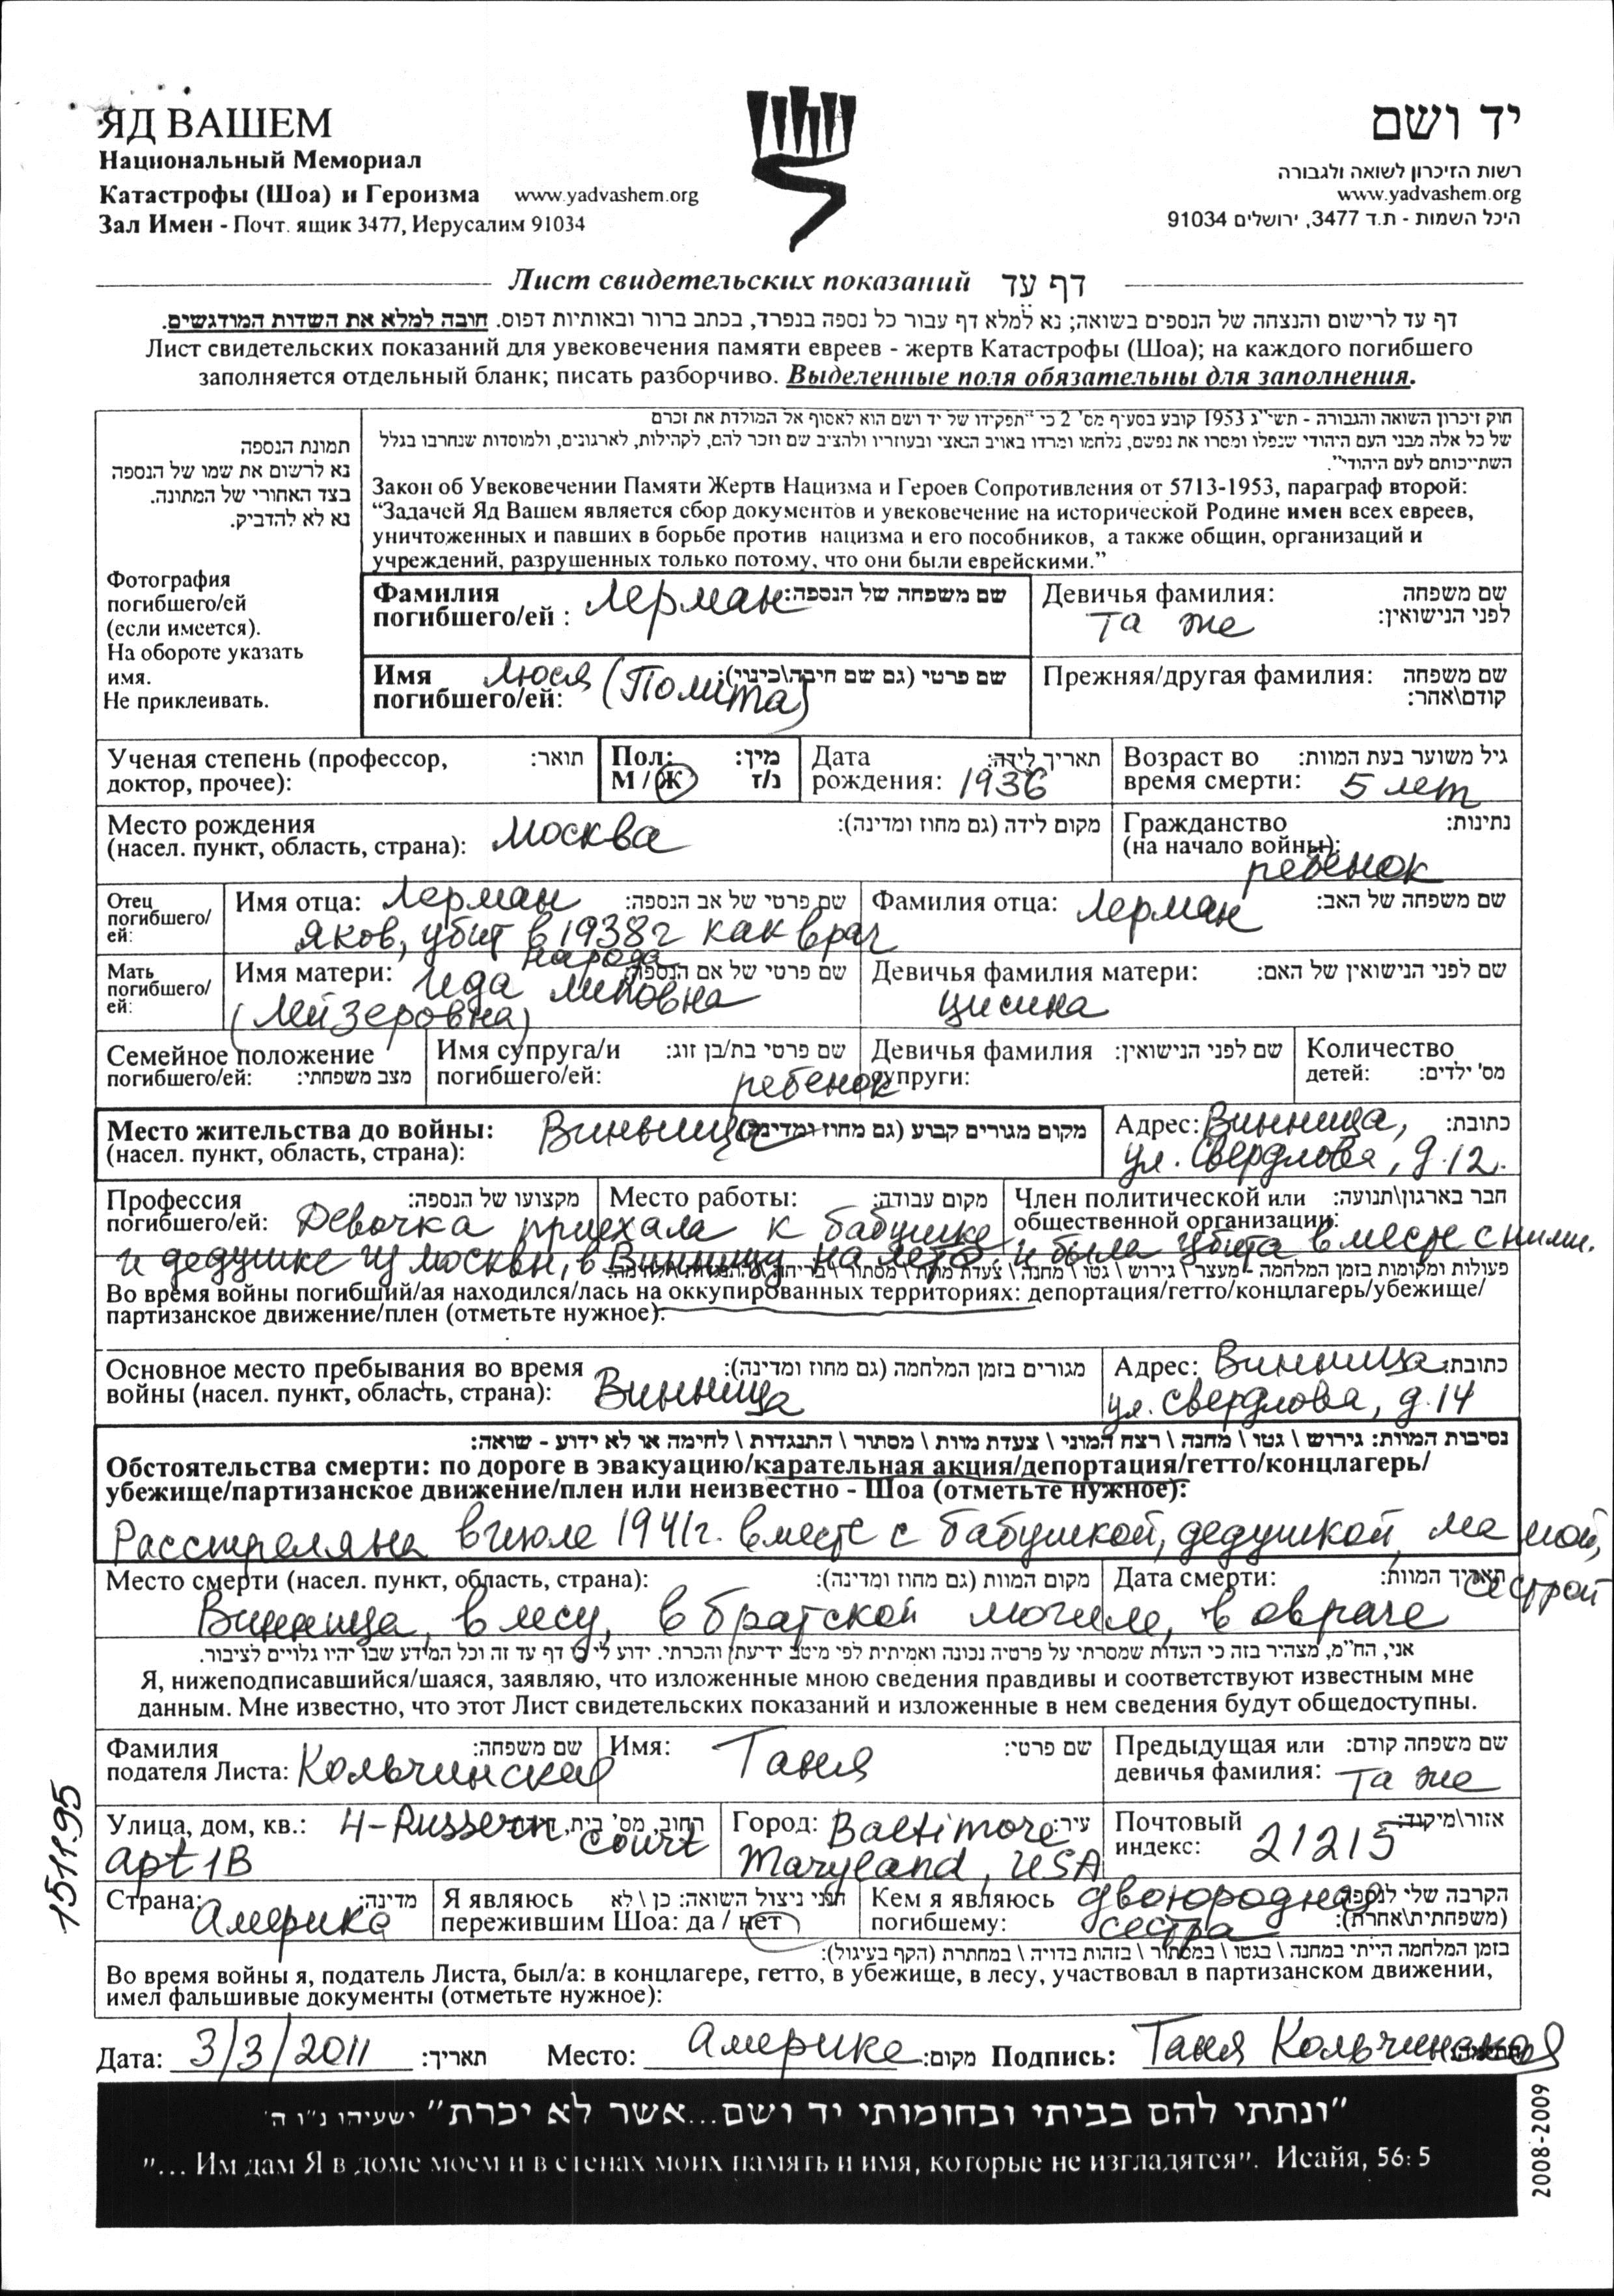 ЯД ВАШЕМ
Национальный Мемориал
Катастрофы (Шоа) и Героизма www.yadvashem.org
Зал Имен - Почт. ящик 3477, Иерусалим 91034
יד ושם
רשות הזיכרון לשואה ולגבורה
www.yadvashem.org
היכל השמות - ת.ד 3477, ירושלים 91034
Лист свидетельских показаний דף עד
דף עד לרישום והנצחה של הנספים בשואה; נא למלא דף עבור כל נספה בנפרד, בכתב ברור ובאותיות דפוס. חובה למלא את השדות המודגשים.
Лист свидетельских показаний для увековечения памяти евреев - жертв Катастрофы (Шоа); на каждого погибшего
заполняется отдельный бланк; писать разборчиво. Выделенные поля обязательны для заполнения.
תמונת הנספה
נא לרשום את שמו של הנספה
בצד האחורי של המתונה.
נא לא להדביק.
Фотография
погибшего/ей
(если имеется).
На обороте указать
имя.
Не приклеивать.
חוק זיכרון השואה והגבורה - תשי"ג 1953 קובע בסעיף מס' 2 כי "תפקידו של יד ושם הוא לאסוף אל המולדת את זכרם
של כל אלה מבני העם היהודי שנפלו ומסרו את נפשם, נלחמו ומרדו באויב הנאצי ובעוזריו ולהציב שם וזכר להם, לקהילות, לארגונים, ולמוסדות שנחרבו בגלל
השתייכותם לעם היהודי".
Закон об Увековечении Памяти Жертв Нацизма и Героев Сопротивления от 5713-1953, параграф второй:
“Задачей Яд Вашем является сбор документов и увековечение на исторической Родине имен всех евреев,
уничтоженных и павших в борьбе против нацизма и его пособников, а также общин, организаций и
учреждений, разрушенных только потому, что они были еврейскими.”
Фамилия погибшего/ей : Лерман שם משפחה של הנספה:
Девичья фамилия: та же שם משפחה לפני הנישואין:
Имя погибшего/ей: Люся (Полита) שם פרטי (גם שם חיבה\כינוי):
Прежняя/другая фамилия: שם משפחה קודם\אחר:
Ученая степень (профессор, доктор, прочее): תואר:
Пол: М / Ж מין: נ/ז
Дата рождения: 1936 תאריך לידה:
Возраст во время смерти: 5 лет גיל משוער בעת המוות:
Место рождения (насел. пункт, область, страна): Москва מקום לידה (גם מחוז ומדינה):
Гражданство (на начало войны): ребенок נתינות:
Отец погибшего/ей:
Имя отца: Лерман שם פרטי של אב הנספה:
Яков, убит в 1938г как враг
народа
Фамилия отца: Лерман שם משפחה של האב:
Мать погибшего/ей:
Имя матери: Ида Липовна שם פרטי של אם הנספה:
(Лейзеровна)
Девичья фамилия матери: Цисина שם לפני הנישואין של האם:
Семейное положение погибшего/ей: מצב משפחתי:
Имя супруга/и погибшего/ей: ребенок שם פרטי בת/בן זוג:
Девичья фамилия супруги: שם לפני הנישואין:
Количество детей: מס' ילדים:
Место жительства до войны: (насел. пункт, область, страна): Винница מקום מגורים קבוע (גם מחוז ומדינה)
Адрес: Винница, כתובת:
ул. Свердлова, д.12.
Профессия погибшего/ей: מקצועו של הנספה:
Место работы: מקום עבודה:
Член политической или общественной организации: חבר בארגון\תנועה:
Девочка приехала к бабушке
и дедушке из Москвы, в Винницу на лето и была убита вместе с ними.
פעולות ומקומות בזמן המלחמה - מעצר \ גירוש \ גטו \ מחנה \ צעדת מוות \ מסתור \
Во время войны погибший/ая находился/лась на оккупированных территориях: депортация/гетто/концлагерь/убежище/
партизанское движение/плен (отметьте нужное):
Основное место пребывания во время войны (насел. пункт, область, страна): Винница מגורים בזמן המלחמה (גם מחוז ומדינה):
Адрес: Винница כתובת:
ул. Свердлова, д.14
נסיבות המוות: גירוש \ גטו \ מחנה \ רצח המוני \ צעדת מוות \ מסתור \ התנגדות \ לחימה או לא ידוע - שואה:
Обстоятельства смерти: по дороге в эвакуацию/карательная акция/депортация/гетто/концлагерь/
убежище/партизанское движение/плен или неизвестно - Шоа (отметьте нужное):
Расстреляна в июле 1941г. вместе с бабушкой, дедушкой, мамой,
сестрой
Место смерти (насел. пункт, область, страна): מקום המוות (גם מחוז ומדינה):
Дата смерти: תאריך המוות:
Винница, в лесу, в братской могиле, в овраге
אני, הח"מ, מצהיר בזה כי העדות שמסרתי על פרטיה נכונה ואמיתית לפי מיטב ידיעתי והכרתי. ידוע לי כי דף עד זה וכל המידע שבו יהיו גלויים לציבור.
Я, нижеподписавшийся/шаяся, заявляю, что изложенные мною сведения правдивы и соответствуют известным мне
данным. Мне известно, что этот Лист свидетельских показаний и изложенные в нем сведения будут общедоступны.
Фамилия подателя Листа: Кольчинская שם משפחה:
Имя: Таня שם פרטי:
Предыдущая или девичья фамилия: та же שם משפחה קודם:
Улица, дом, кв.: 4-Russern Court רחוב, מס' בית,
apt 1B
Город: Baltimore עיר:
Maryland, USA
Почтовый индекс: 21215 אזור\מיקוד:
Страна: Америка מדינה:
Я являюсь пережившим Шоа: да / нет הנני ניצול השואה: כן \ לא
Кем я являюсь погибшему: двоюродная сестра הקרבה שלי לנספה (משפחתית\אחרת):
בזמן המלחמה הייתי במחנה \ בגטו \ במסתור \ בזהות בדויה \ במחתרת (הקף בעיגול):
Во время войны я, податель Листа, был/а: в концлагере, гетто, в убежище, в лесу, участвовал в партизанском движении,
имел фальшивые документы (отметьте нужное):
Дата: 3/3/2011 תאריך: Место: Америке מקום: Подпись: Таня Кольчинская
"ונתתי להם בביתי ובחומותי יד ושם...אשר לא יכרת" ישעיהו נ"ו ה'
"... Им дам Я в доме моем и в стенах моих память и имя, которые не изгладятся". Исайя, 56: 5
151195
2008-2009